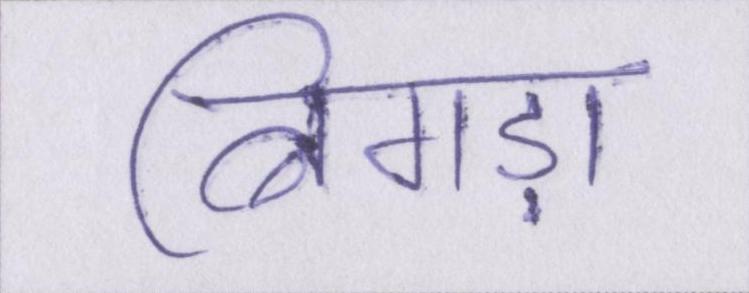 बिगड़ा